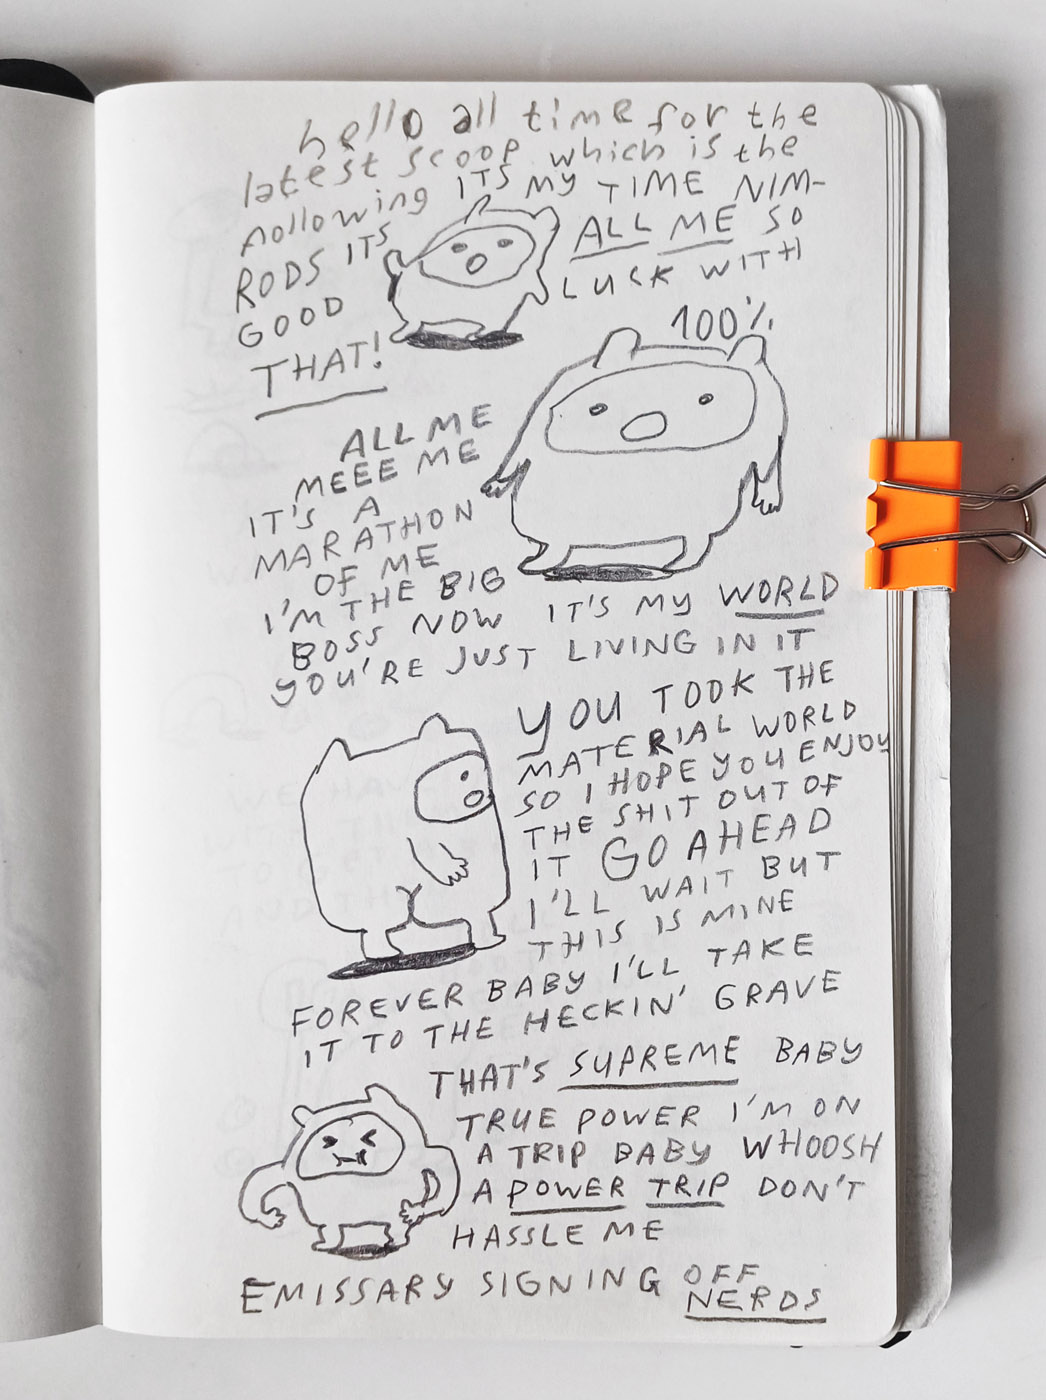 hello all time for the
latest scoop which is the
nollowing ITS MY TIME NIM-
RODS ITS ALL ME SO
GOOD LUCK WITH
THAT!
100%
ALL ME
MEEE ME
IT'S A
MARATHON
OF ME
I'M THE BIG
BOSS NOW IT'S MY WORLD
YOU'RE JUST LIVING IN IT
YOU TOOK THE
MATERIAL WORLD
SO I HOPE YOU ENJOY
THE SHIT OUT OF
IT GO AHEAD
I'LL WAIT BUT
THIS IS MINE
FOREVER BABY I'LL TAKE
IT TO THE HECKIN' GRAVE
THAT'S SUPREME BABY
TRUE POWER I'M ON
A TRIP BABY WHOOSH
A POWER TRIP DON'T
HASSLE ME
EMISSARY SIGNING OFF
NERDS